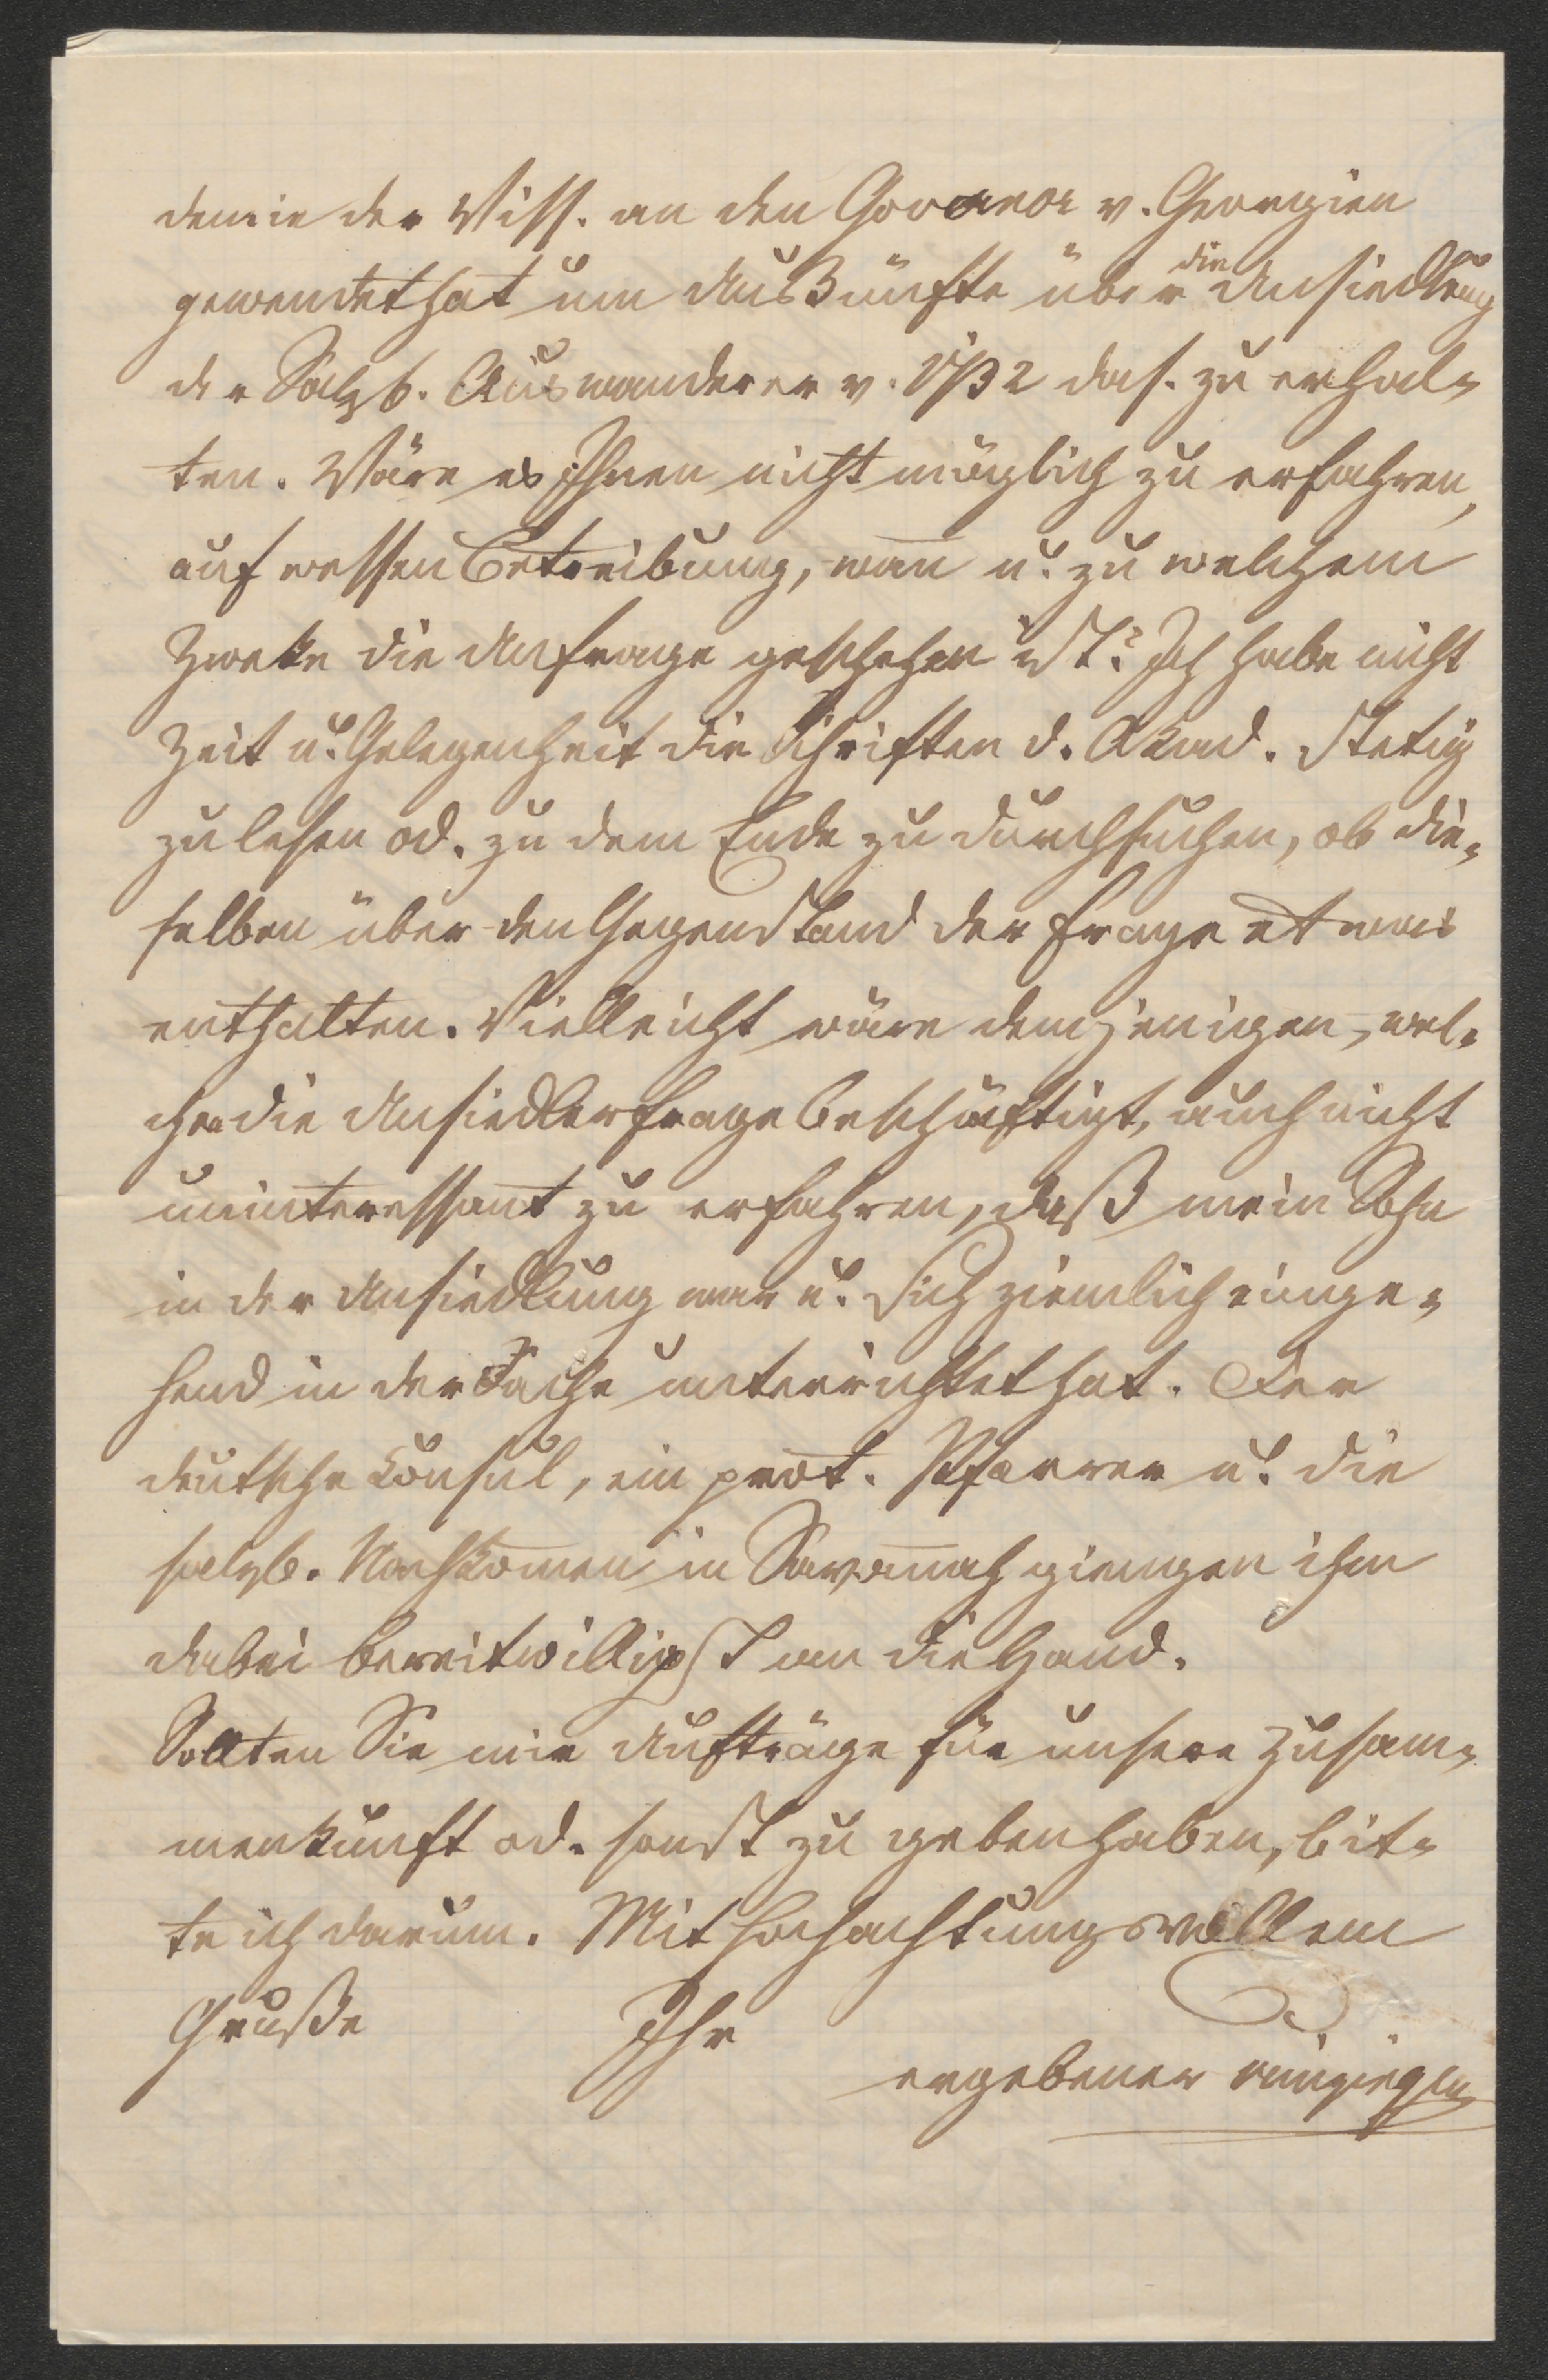 demie der Wiss. an den Governor v. Georgien
gewendet hat um Auskünfte über die Ansiedlung
der Salzb. Auswanderer v. 1732 das. zu erhal-
ten. Wäre es Ihnen nicht möglich zu erfahren,
auf wessen Betreibung, wan̅ u. zu welchem
Zweke die Anfrage geschehen ist? Ich habe nicht
Zeit u. Gelegenheit die Schriften d. Akad. stetig
zu lesen od. zu dem Ende zu durchsuchen, ob die-
selben über den Gegenstand der Frage etwas
enthalten. Vielleicht wäre demjenigen, wel-
chen die Ansiedlerfrage beschäftigt, auch nicht
uninteressant zu erfahren, daß mein Sohn
in der Ansiedlung war u. sich ziemlich einge-
hend in der Sache unterrichtet hat. Der
deutsche Konsul, ein prot. Pfarrer u. die
salzb. Nachkom̅en in Savan̅ah giengen ihm
dabei bereitwilligst an die Hand.
Sollten Sie mir Aufträge für unsere Zusam-
menkunft od. sonst zu geben haben, bit-
te ich darum. Mit hochachtungsvollem
Gruße Ihr
ergebener